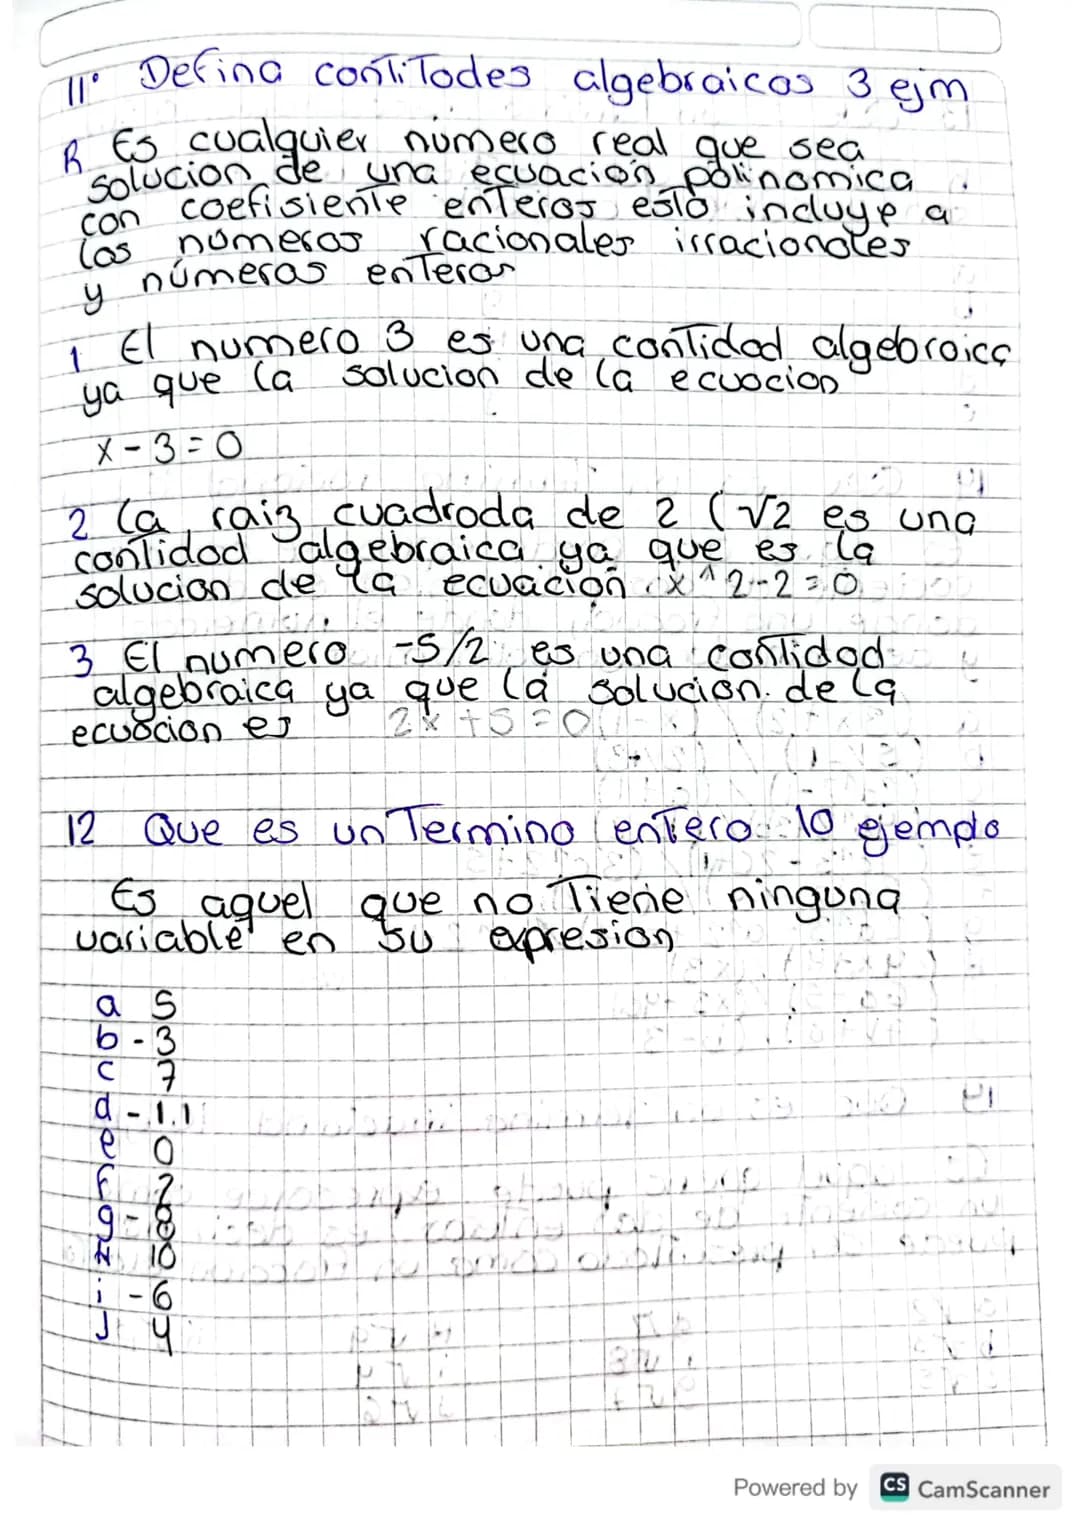 11° Defina contitodes algebraicas 3 ejm
R Es cualquier número real que sea
solucion de una ecuación polinomica
con coefisiente enteros esto incluye a
los números racionales irracionales
y números enteros
1 El numero 3 es una contidod algebroica
ya que la solucion de la ecuocion
x - 3 = 0
2 la raiz cuadroda de 2 (√2 es una
contidod algebraica ya que es la
solucion de la ecuación x^2-2=0
3 El numero -5/2 es una contidod
algebraica ya que la solucion de la
ecuocion es 2x+5=0
12 Que es un Termino entero 10 ejemplo
Es aquel que no Tiene ninguna
variable en su expresion
a 5
b -3
c 7
d -1.1
e 0
f 2
g -8
H 10
i -6
J 4
Powered by CS CamScanner